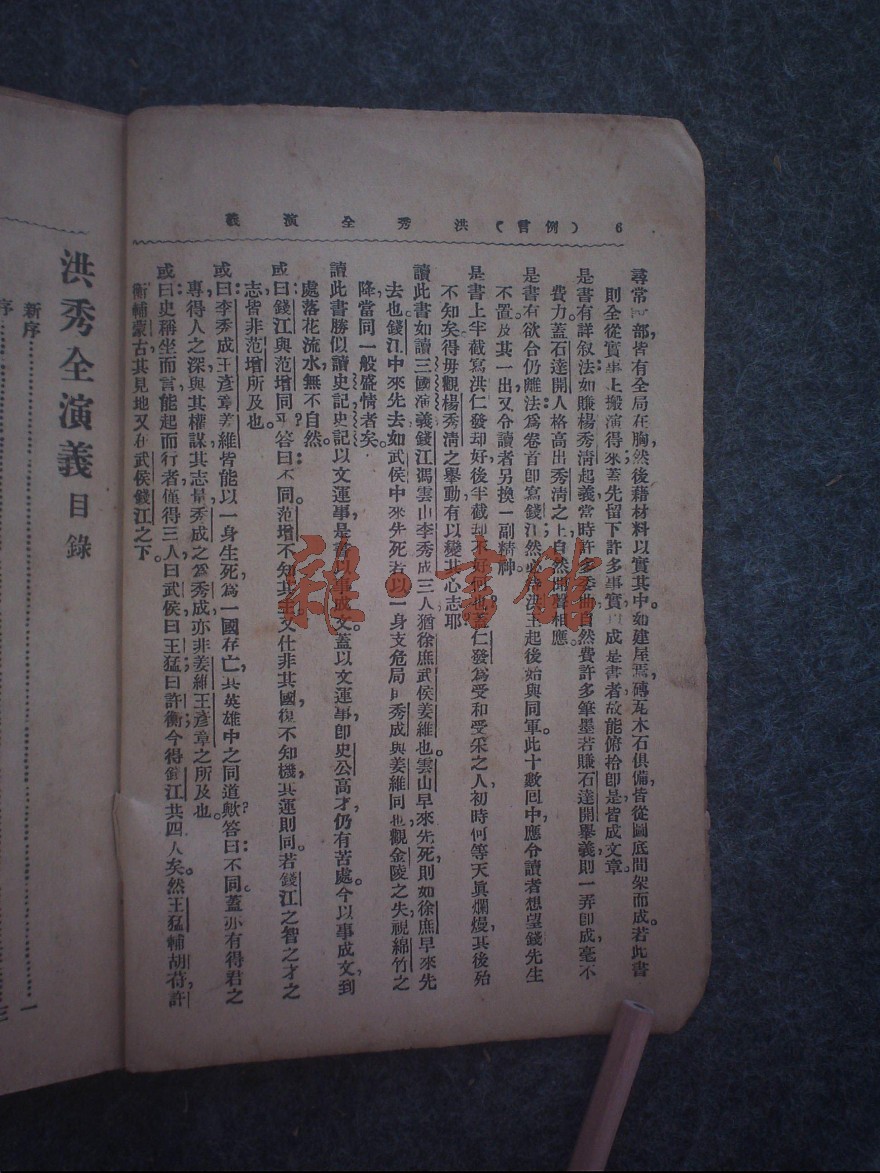 6 (例言) 洪秀全演義
尋常一部,皆有全局在胸,然後藉材料以實其中。如建屋焉,磚瓦木石俱備,皆從圖底間架而成。若此書
則全從實事上搬演得來,蓋先留下許多事實,以成是書者,故能俯拾即是,皆成文章。
是書有詳叙法:如賺楊秀清起義,當時許多委曲,自然費許多筆墨;若賺石達開舉義,則一弄即成,毫不
費力。蓋石達開人格高出秀清之上,自然聞聲相應。
是書有欲合仍離法:爲卷首即寫錢江,然必待洪王起後始與同軍。此十數回中,應令讀者想望錢先生
不置,及其一出,又令讀者另換一副精神。
是書上半截寫洪仁發却好,後半截却不好,何也?蓋仁發爲受和受采之人,初時何等天眞爛熳,其後殆
不知矣。得毋觀楊秀清之舉動,有以變其心志耶
讀此書如讀三國演義:錢江馮雲山李秀成三人,猶徐庶武侯姜維也。雲山早來先死,則如徐庶早來先
去也;錢江中來先去,如武侯中來先死;若以一身支危局,即秀成與姜維同也,觀金陵之失,視綿竹之
降,當同一般盛情者矣。
讀此書勝似讀史記:史記以文運事,是書以事成文。蓋以文運事,即史公高才,仍有苦處。今以事成文,到
處落花流水,無不自然。
或曰:錢江與范增同乎?答曰:不同。范增不知其主,又仕非其國,復不知機,其運則同。若錢江之智之才之
志,皆非范增所及也。
或曰:李秀成王彥章姜維皆能以一身生死,爲一國存亡,其英雄中之同道歟?答曰:不同。蓋亦有得君之
專,得人之深,與其權謀其志量,秀成之爲秀成,亦非姜維王彥章之所及也。
或曰:史稱坐而言,能起而行者,僅得三人:曰武侯,曰王猛,曰許衡;今得錢江,共四人矣。然王猛輔胡苻,許
衡輔蒙古,其見地又在武侯錢江之下。
洪秀全演義目錄
新序……一
序……三
雜·書館